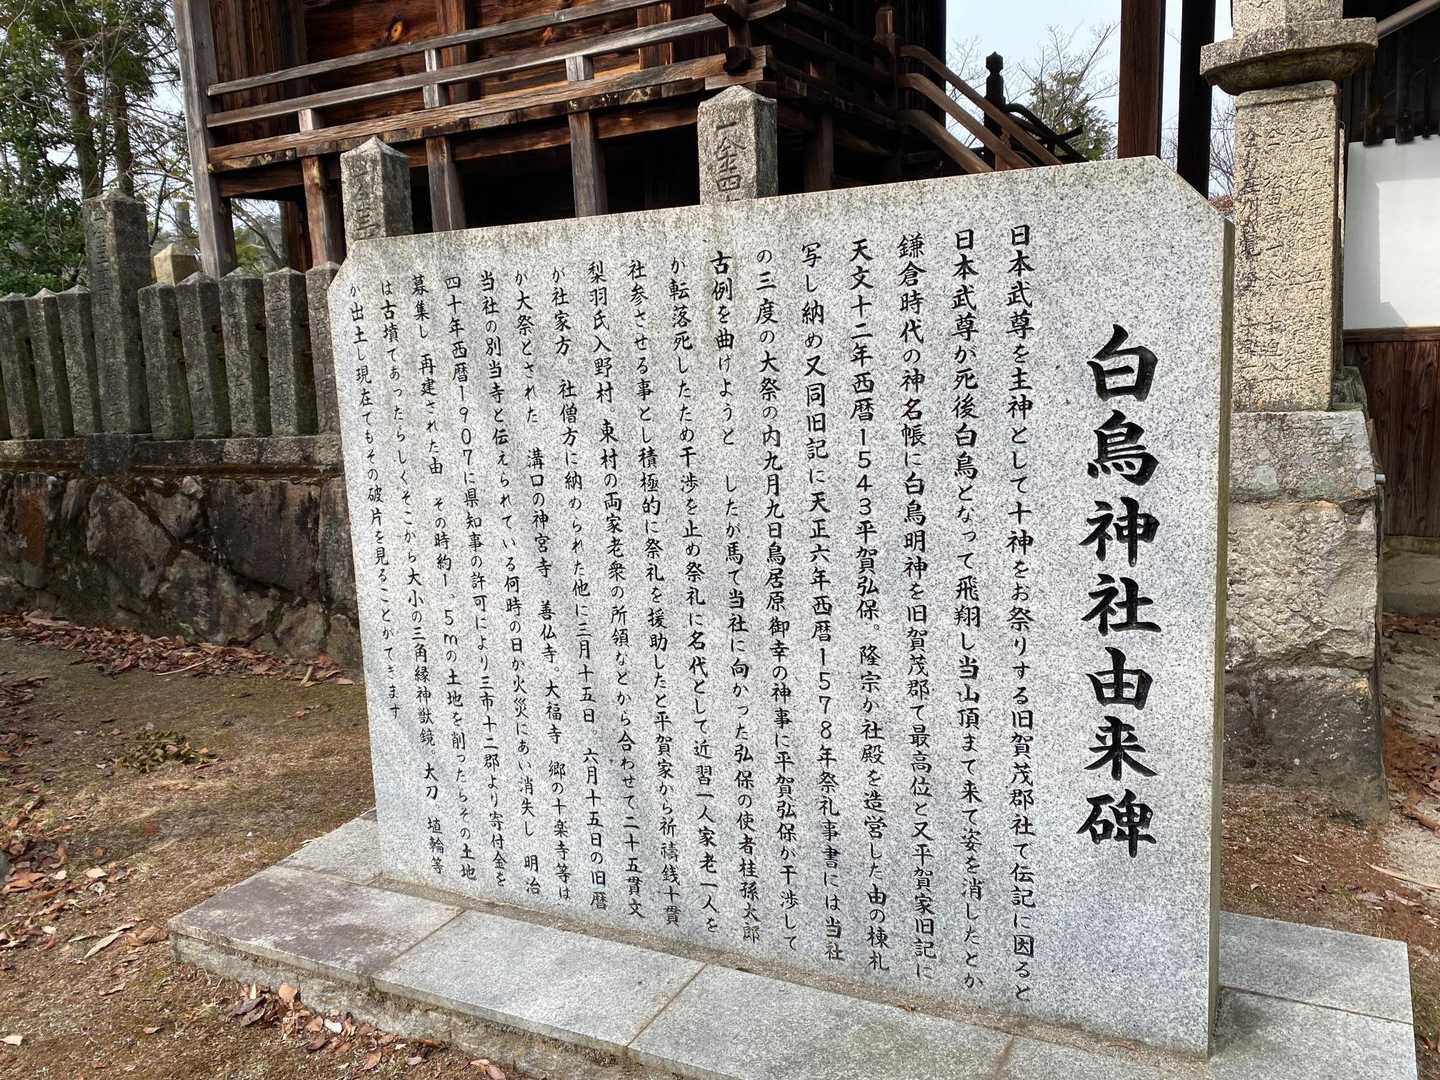 白鳥神社由来碑
日本武尊を主神として十神をお祭りする旧賀茂郡社て伝記に因ると
日本武尊が死後白鳥となって飛翔し当山頂まて来て姿を消したとか
鎌倉時代の神名帳に白鳥明神を旧賀茂郡て最高位と又平賀家旧記に
天文十二年西暦1543平賀弘保。隆宗か社殿を造営した由の棟礼
写し納め又同旧記に天正六年西暦1578年祭礼事書には当社
の三度の大祭の内九月九日鳥居原御幸の神事に平賀弘保が干渉して
古例を曲けようと したか馬て当社に向かった弘保の使者桂孫太郎
か転落死したため干渉を止め祭礼に名代として近習一人家老一人を
社参させる事とし積極的に祭礼を援助したと平賀家から祈禱銭十貫
梨羽氏入野村 東村の両家老衆の所領などから合わせて二十五貫文
が社家方。社僧方に納められた他に三月十五日。六月十五日の旧暦
が大祭とされた 溝口の神宮寺。善仏寺。大福寺 郷の十楽寺等は
当社の別当寺と伝えられている何時の日か火災にあい消失し 明治
四十年西暦1907に県知事の許可により三市十二郡より寄付金を
募集し 再建された由 その時約1。5mの土地を削ったらその土地
は古墳てあったらしくそこから大小の三角縁神獣鏡。太刀 埴輪等
か出土し現在てもその破片を見ることかてきます
一金四